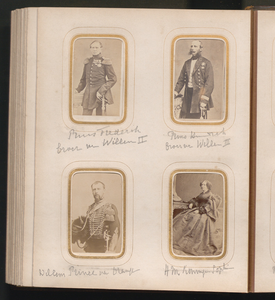 Prins Frederik
Broer van Willem II
Prins Hendrik
Broer van Willem III
Willem Prince van Oranje
H M